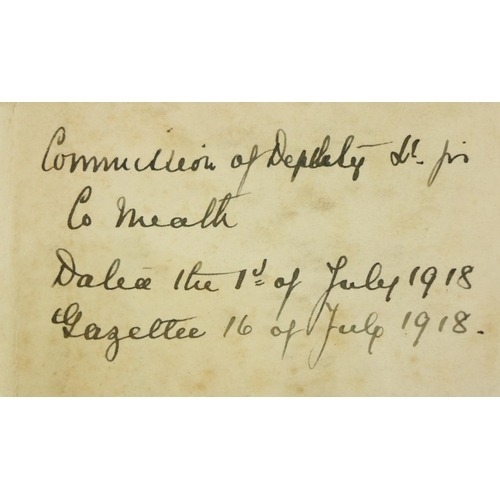 Commission of Deputy Lt. for
Co Meath
Dated the 1st of July 1918
Gazettee 16 of July 1918.